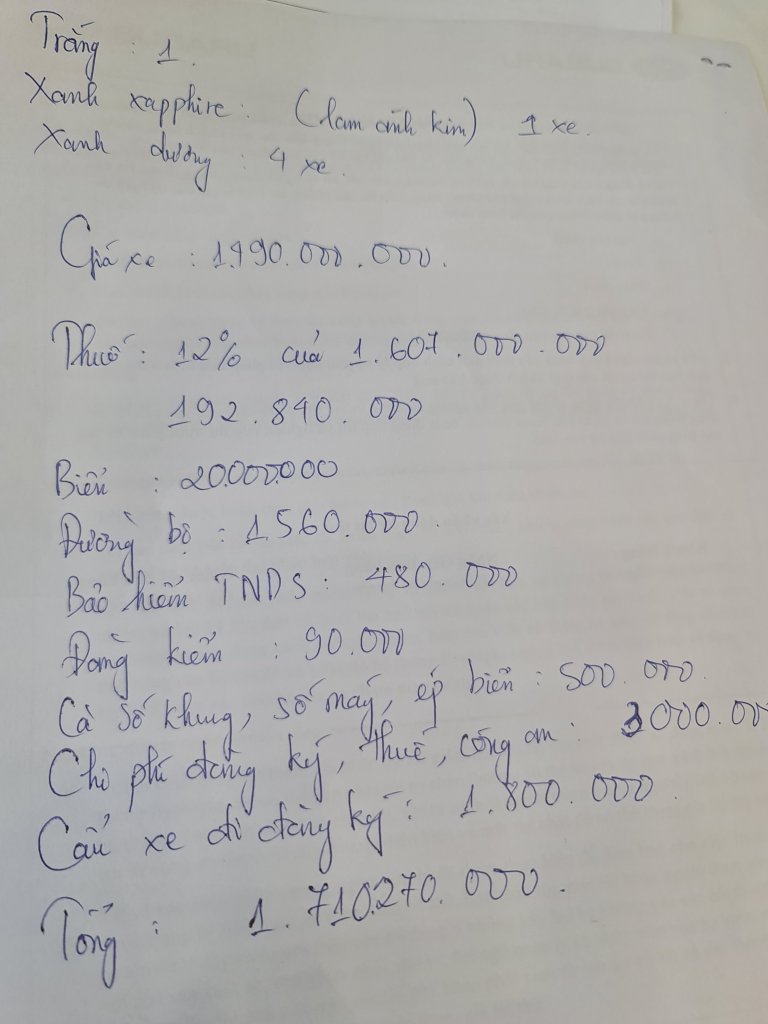 Trắng : 1.
Xanh xapphire : (lam ánh kim) 1 xe.
Xanh dương : 4 xe.
Giá xe : 1.490.000.000.
Thuế : 12% của 1.607.000.000
192.840.000
Biển : 20.000.000
Đường bộ : 1.560.000.
Bảo hiểm TNDS : 480.000
Đăng kiểm : 90.000
Cà số khung, số máy, ép biển : 500.000.
Chi phí đăng ký, thuế, công an : 3000.00
Cẩu xe đi đăng ký : 1.800.000.
Tổng : 1.710.270.000.